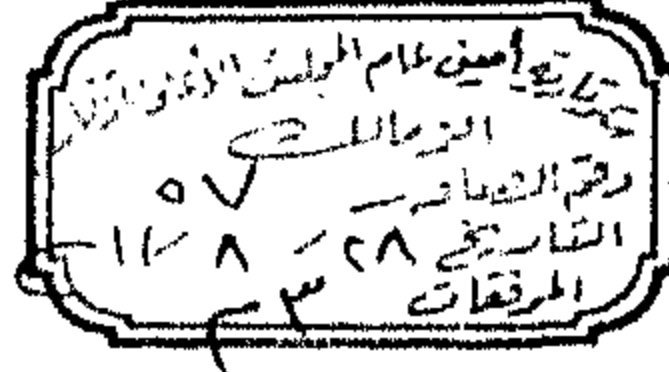 سكرتارية أمين عام المجلس الأعلى للآثار
الزمالك
رقم الصادر ٥٧
التاريخ ٢٨ - ٨ -
المرفقات ٣